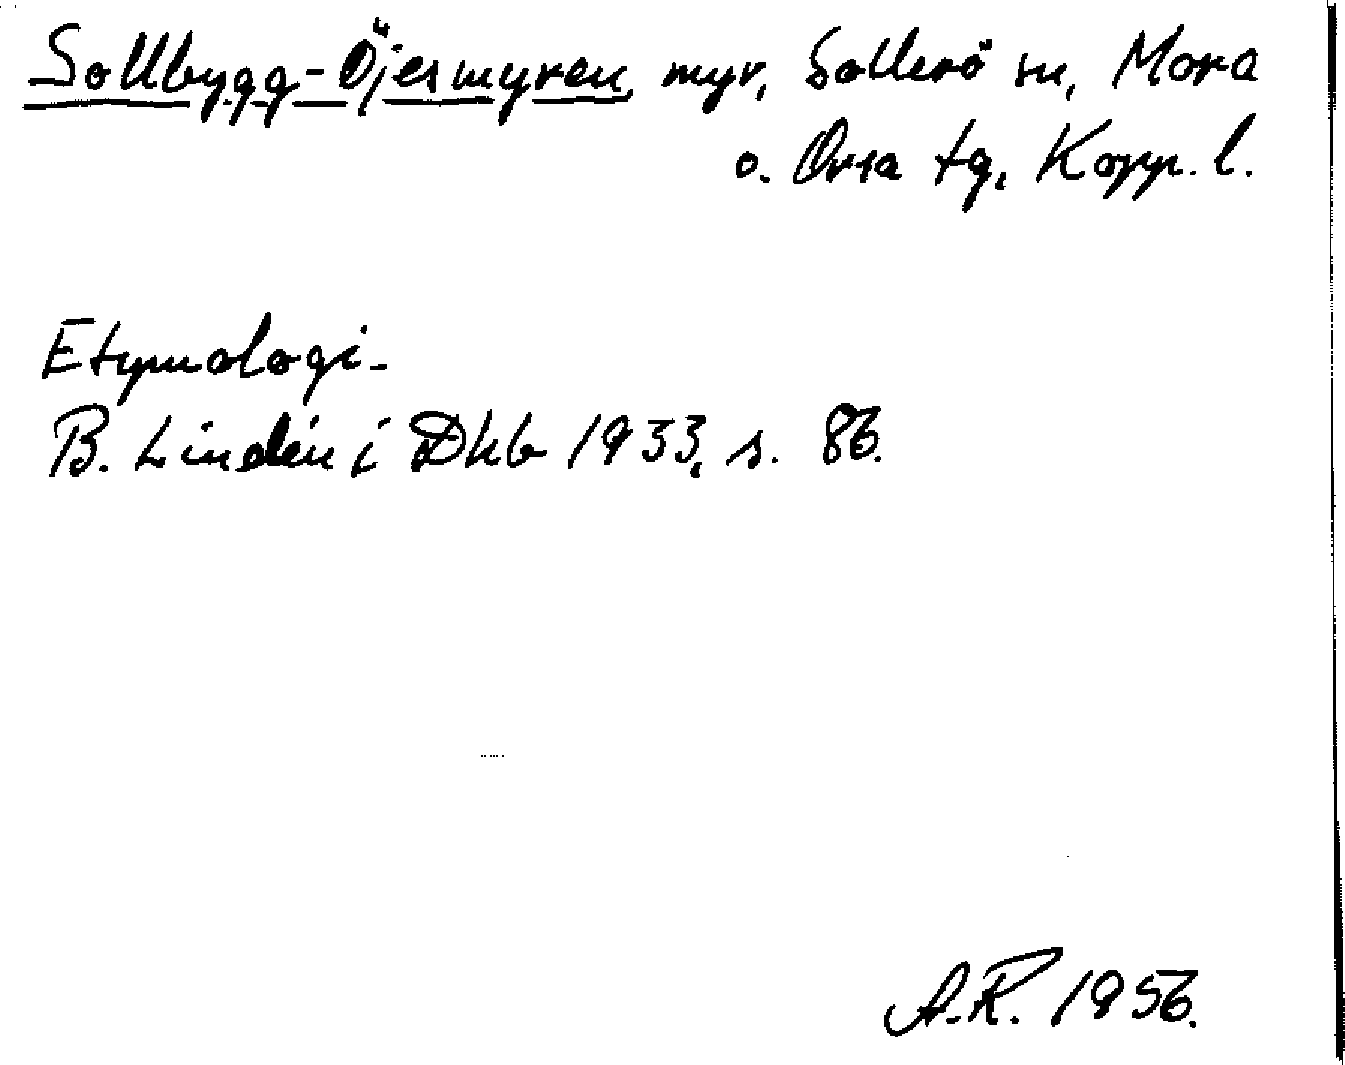 Sollbygg-Öjesmyren, myr, Sollerö sn, Mora
o. Orsa tg, Kopp. l.
Etymologi.
B. Lindén i Dhb 1933, s. 86.
A.R. 1956.